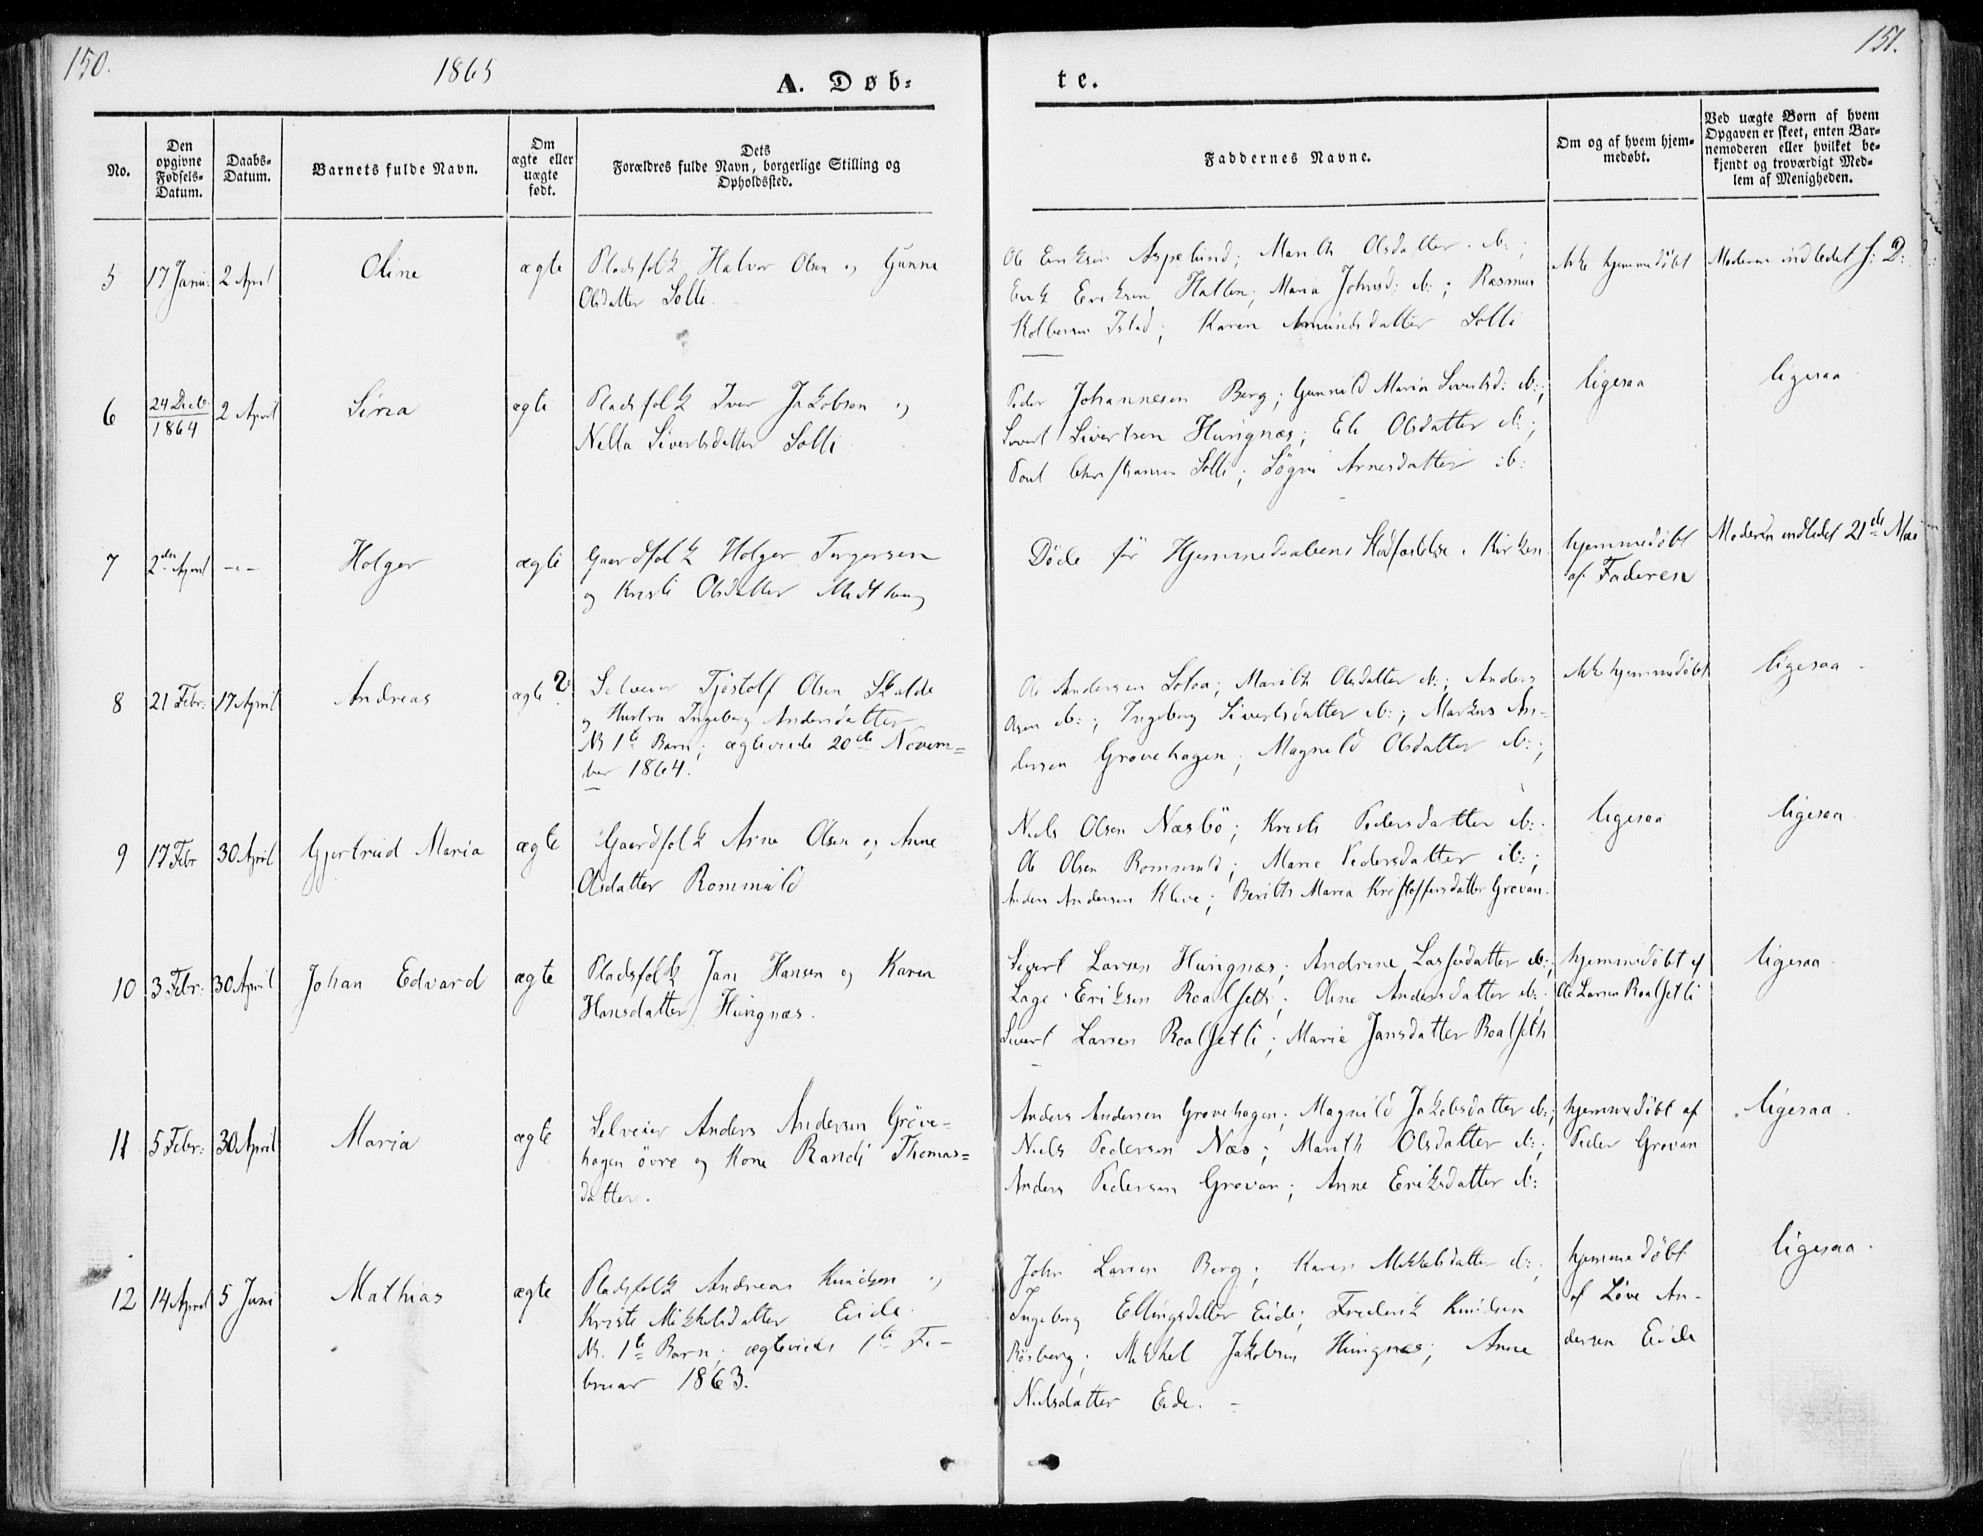 150.
1865
A. Døb-
te.
151.
No.
Den opgivne Fødsels-Datum.
Daabs-Datum.
Barnets fulde Navn.
Om ægte eller uægte født.
Dets Forældres fulde Navn, borgerlige Stilling og Opholdssted.
Faddernes Navne.
Om og af hvem hjem-medøbt.
Ved uægte Børn af hvem Opgaven er skeet, enten Bar-nemoderen eller hvilket be-kjendt og troværdigt Med-lem af Menigheden.
5 17 Janu: 2 April Oline ægte
Pladsfolk Halvor Olsen og Gunna
Olsdatter Solli.
Ole Eriksen Aspelund; Marith Olsdatter ib:;
Erik Eriksen Hallen; Maria Johnsd: ib:; Rasmus
Istad; Karen Amundsdatter Solli
ikke hjemmedöbt
Moderen indledet s: D:
6 24 Decb. 1864 2 April Sirea ægte
Pladsfolk Iver Jakobsen og
Nella Sivertsdatter Solli
Peder Johannesen Berg; Gunnild Maria Sivertsd: ib:;
Sivert Sivertsen Hungnæs; Eli Olsdatter ib:;
Poul Christiansen Solli; Arnesdatter ib:
ligesaa
ligesaa
7 2den April -"- Holger ægte
Gaardfolk Holger Torgersen
og Kristi Olsdatter
Döde för Hjemmedaabens Stadfæstelse i Kirken
hjemmedöbt
af Faderen
Moderen indledet 21de Mai
8 21 Febr: 17 April Andreas ægte?
Selveier Tjöstolf Olsen Skalde
og Hustru Ingeborg Andersdatter
N. 1te Barn; ægteviede 20de Novem=
ber 1864.
Ole Andersen; Marith Olsdatter ib:; Anders
Olsen ib:; Ingeborg Sivertsdatter ib:; Markus An-
dersen Grovehagen; Magnild Olsdatter ib:;
ikke hjemmedöbt
ligesaa
9 17 Febr 30 April Gjertrud Maria ægte
Gaardfolk Arne Olsen og Anne
Olsdatter Rommuld
Niels Olsen Næsbö; Kristi Pedersdatter ib:
Ole Olsen Rommuld; Marie Pedersdatter ib:;
Anders Andersen Kleve; Berith Maria Kristoffersdatter Grovan.
ligesaa
ligesaa
10 3 Febr: 30 April Johan Edvard ægte
Pladsfolk Jan Hansen og Karen
Hansdatter Hungnæs.
Sivert Larsen Hungnæs; Andrine Larsdatter ib:;
Lage Eriksen Roalseth; Oline Andersdatter ib:
Sivert Larsen Roalsetli; Marie Jansdatter Roalseth
hjemmedöbt af
Ole Larsen Roalsetli
ligesaa
11 5 Febr: 30 April Maria ægte
Selveier Anders Andersen Grove-
hagen övre og Kone Randi Thomas=
datter.
Anders Andersen Grovehagen; Magnild Jakobsdatter ib:;
Niels Pedersen Næs; Marith Olsdatter ib:;
Anders Pedersen Grovan; Anne Eriksdatter ib:
hjemmedöbt af
Peder Grovan
ligesaa.
12 14 April 5 Juni Mathias ægte
Pladsfolk Andreas Knudsen og
Kristi Mikkelsdatter Eide.
N. 1te Barn; ægteviede 1te Fe-
bruar 1863.
John Larsen Berg; Karen Mikkelsdatter ib:
Ingeborg Ellingsdatter Eide; Frederik Knudsen
Rösberg; Mikkel Jakobsen Hungnæs; Anne
Nielsdatter Eide.
hjemmedöbt
af Löve An-
dersen Eide
ligesaa.